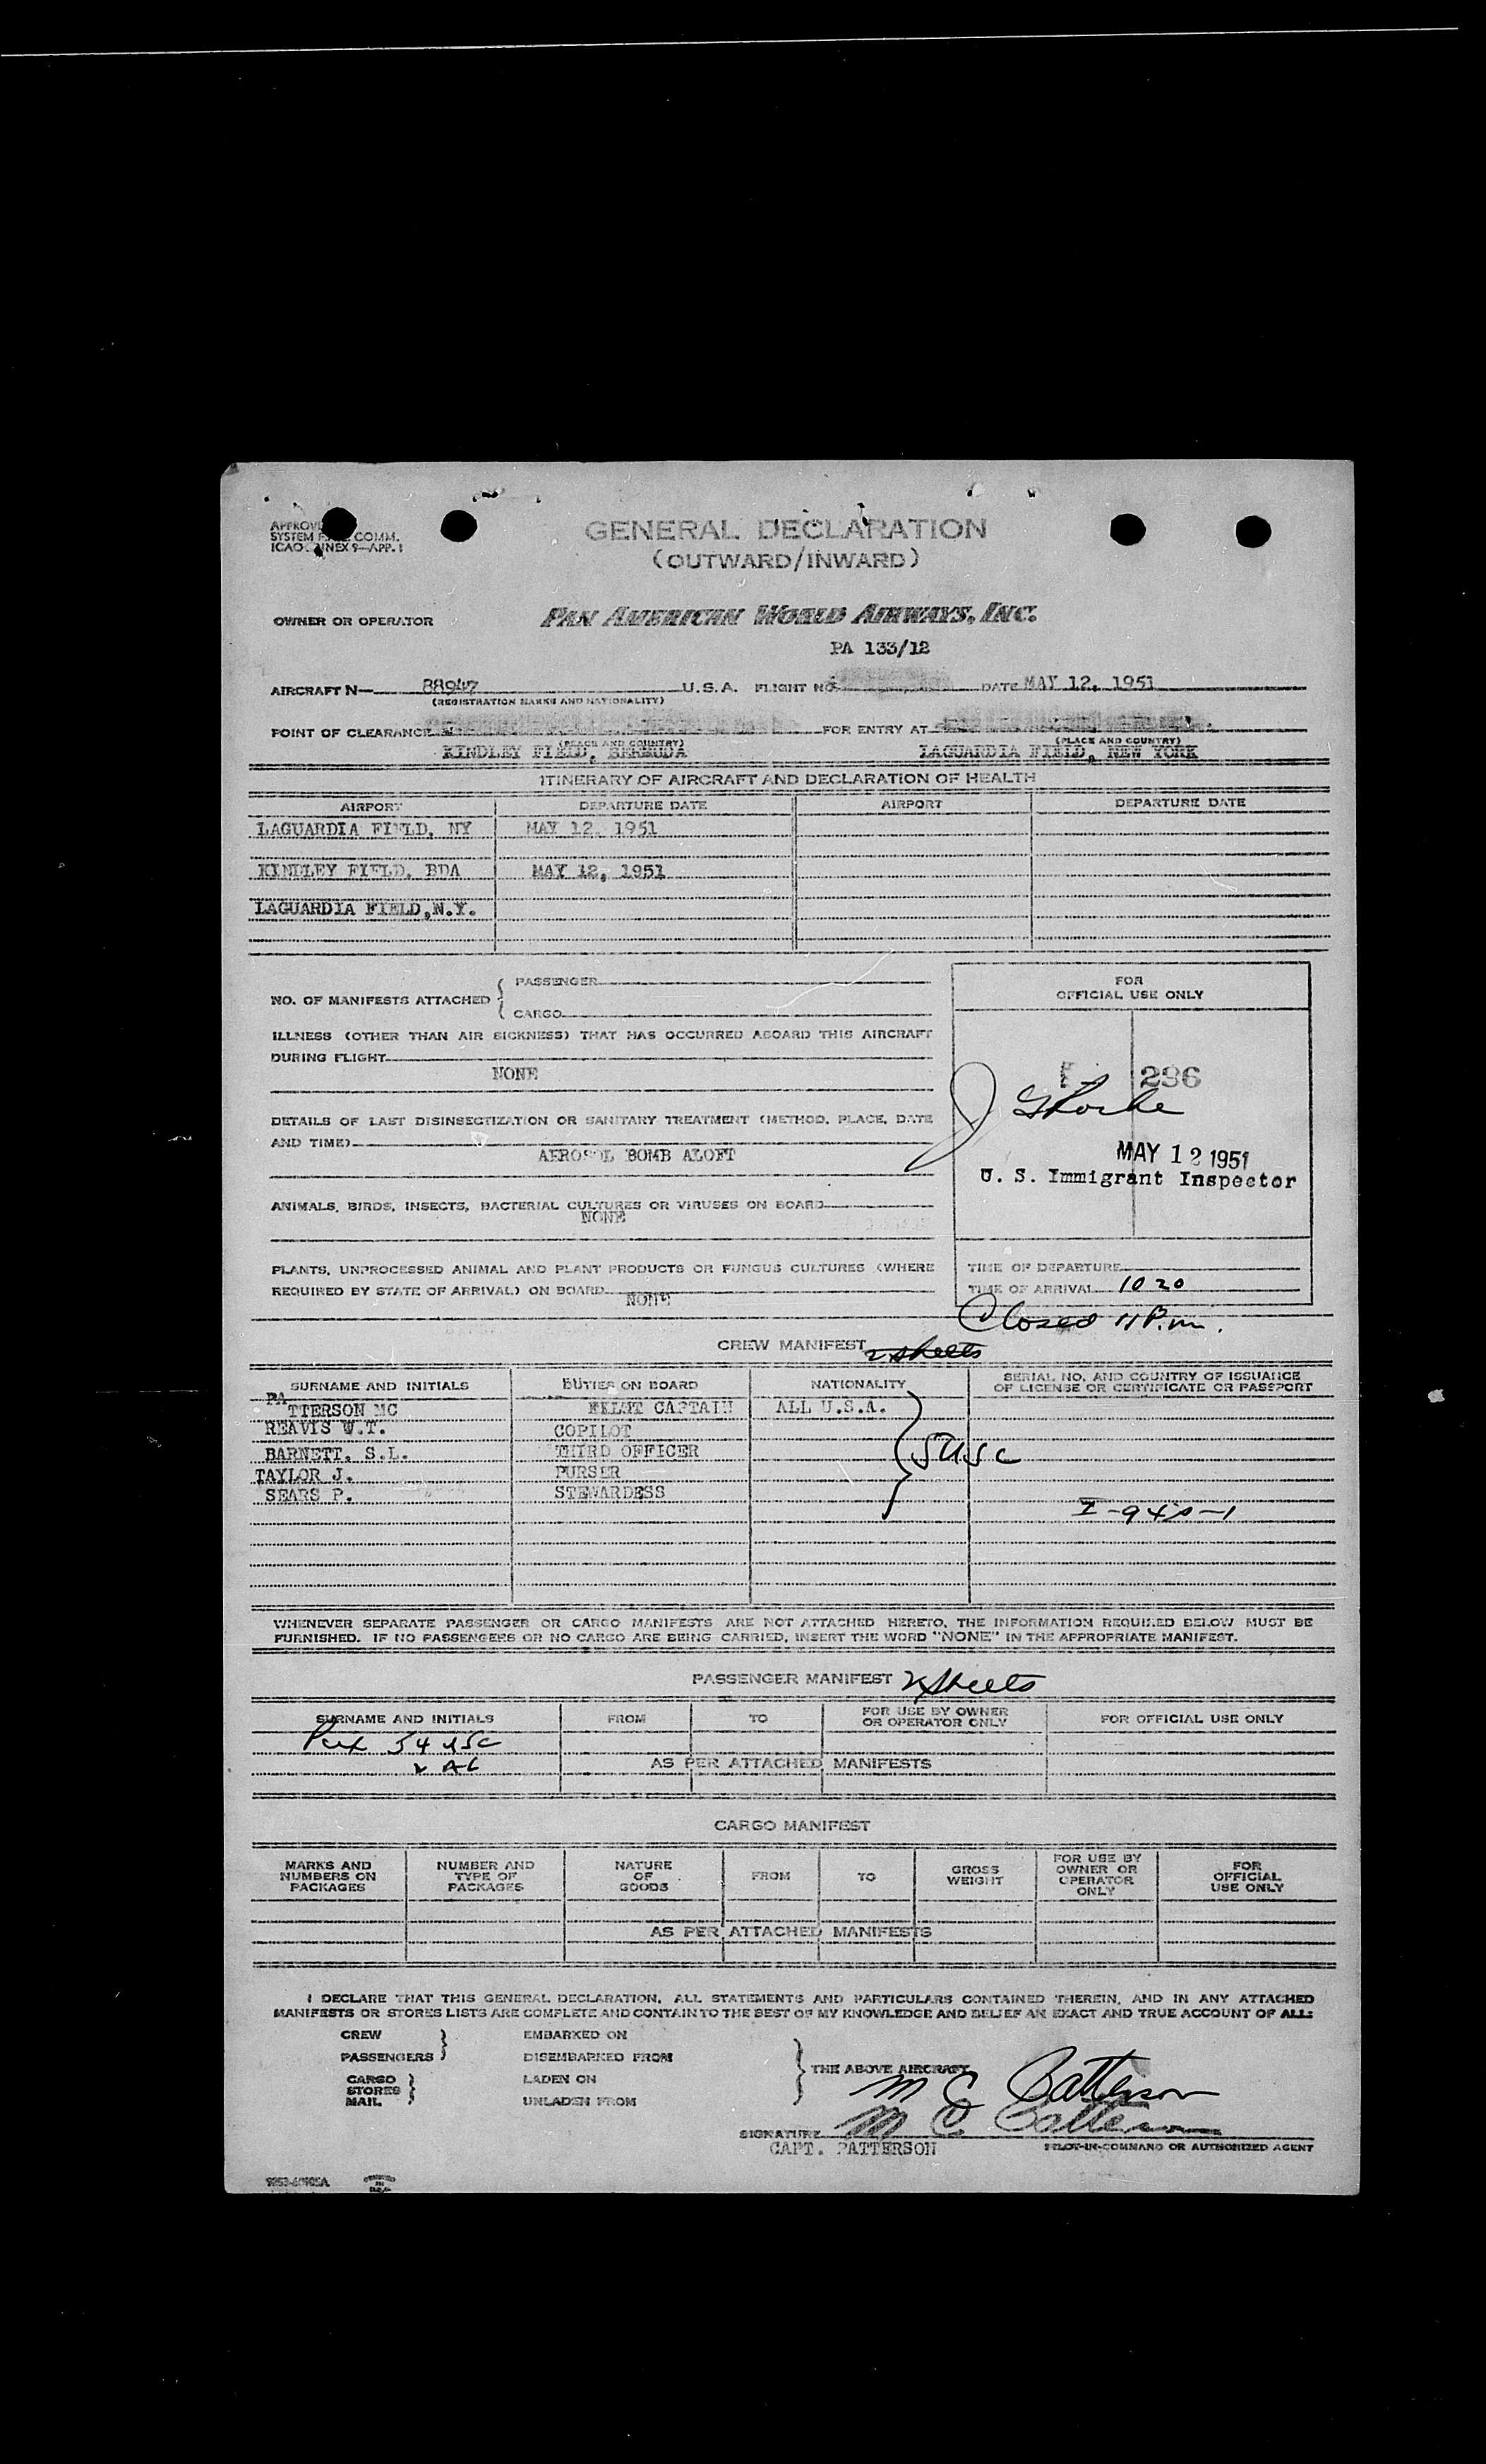 GENERAL DECLARATION
(OUTWARD/INWARD)
SYSTEM COMM.
OWNER OR OPERATOR PAN AMERICAN WORLD AIRWAYS, INC.
PA 133/12
AIRCRAFT N— 88947 U.S.A. FLIGHT NO. DATE MAY 12, 1951
(REGISTRATION MARKS AND NATIONALITY)
POINT OF CLEARANCE FOR ENTRY AT
(PLACE AND COUNTRY) (PLACE AND COUNTRY)
KINDLEY FIELD, BERMUDA LAGUARDIA FIELD, NEW YORK
ITINERARY OF AIRCRAFT AND DECLARATION OF HEALTH
AIRPORT DEPARTURE DATE AIRPORT DEPARTURE DATE
LAGUARDIA FIELD, NY MAY 12, 1951
KINDLEY FIELD, BDA MAY 12, 1951
LAGUARDIA FIELD,N.Y.
NO. OF MANIFESTS ATTACHED { PASSENGER
CARGO
ILLNESS (OTHER THAN AIR SICKNESS) THAT HAS OCCURRED ABOARD THIS AIRCRAFT
DURING FLIGHT
NONE
DETAILS OF LAST DISINSECTIZATION OR SANITARY TREATMENT (METHOD, PLACE, DATE
AND TIME)
AEROSOL BOMB ALOFT
ANIMALS, BIRDS, INSECTS, BACTERIAL CULTURES OR VIRUSES ON BOARD
NONE
PLANTS, UNPROCESSED ANIMAL AND PLANT PRODUCTS OR FUNGUS CULTURES (WHERE
REQUIRED BY STATE OF ARRIVAL) ON BOARD
NONE
FOR
OFFICIAL USE ONLY
286
MAY 12 1951
U. S. Immigrant Inspector
TIME OF DEPARTURE
TIME OF ARRIVAL 10 20
Closed 11 P.m.
CREW MANIFEST 2 sheets
SURNAME AND INITIALS DUTIES ON BOARD NATIONALITY SERIAL NO. AND COUNTRY OF ISSUANCE
OF LICENSE OR CERTIFICATE OR PASSPORT
PATTERSON MC CAPTAIN ALL U.S.A.
REAVIS W.T. COPILOT
BARNETT, S.L. THIRD OFFICER 5 USC
TAYLOR J. PURSER
SEARS P. STEWARDESS
WHENEVER SEPARATE PASSENGER OR CARGO MANIFESTS ARE NOT ATTACHED HERETO, THE INFORMATION REQUIRED BELOW MUST BE
FURNISHED. IF NO PASSENGERS OR NO CARGO ARE BEING CARRIED, INSERT THE WORD "NONE" IN THE APPROPRIATE MANIFEST.
PASSENGER MANIFEST 2 sheets
SURNAME AND INITIALS FROM TO FOR USE BY OWNER
OR OPERATOR ONLY FOR OFFICIAL USE ONLY
54 USC
AS PER ATTACHED MANIFESTS
CARGO MANIFEST
MARKS AND
NUMBERS ON
PACKAGES
NUMBER AND
TYPE OF
PACKAGES
NATURE
OF
GOODS
FROM
TO
GROSS
WEIGHT
FOR USE BY
OWNER OR
OPERATOR
ONLY
FOR
OFFICIAL
USE ONLY
AS PER ATTACHED MANIFESTS
I DECLARE THAT THIS GENERAL DECLARATION, ALL STATEMENTS AND PARTICULARS CONTAINED THEREIN, AND IN ANY ATTACHED
MANIFESTS OR STORES LISTS ARE COMPLETE AND CONTAIN TO THE BEST OF MY KNOWLEDGE AND BELIEF AN EXACT AND TRUE ACCOUNT OF ALL:
CREW EMBARKED ON
PASSENGERS DISEMBARKED FROM
THE ABOVE AIRCRAFT
CARGO LADEN ON
STORES
MAIL UNLADEN FROM
M C Patterson
SIGNATURE M C Patterson
CAPT. PATTERSON PILOT-IN-COMMAND OR AUTHORIZED AGENT